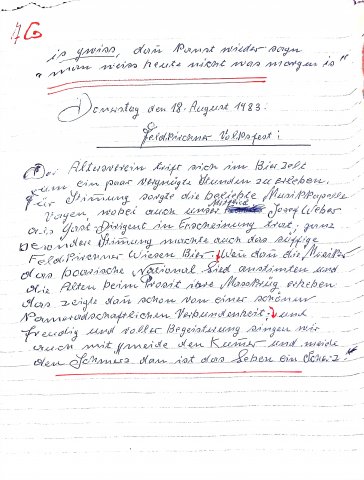 76
is gwiss, dan kanst wieder sagn
"man weiss heute nicht was morgen is"
Donerstag den 18. August 1983:
Feldkirchner Volksfest:
Der Altenverein trift sich im Bierzelt
um ein paar vergnügte Stunden zu erleben.
Für Stimmung sorgte die beliebte Musikkapelle
Vagen, wobei auch unser Mitglied Josef Weber
als Gast Dirigent in Erscheinung trat, ganz
besondere Stimung machte auch das süffige
Feldkirchner Wiesen Bier. Wen dan die Musiker
das boarische National Lied anstimten und
die Alten beim Prosit ihre Masskrüg erheben
das zeigte dan schon von einer schönen
Kameradschaftlichen Verbundenheit, und
freudig und voller Begeisterung singen wir
auch mit "meide den Kumer und meide
den Schmerz dan ist das Leben ein Scherz."